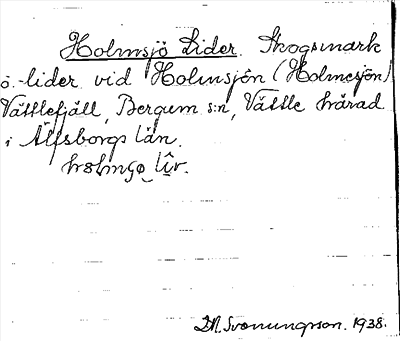 Holmsjö Lider. Skogsmark
o. lider vid Holmsjön (Holmesjön)
Vättlefjäll, Bergum s:n, Vättle härad
i Älfsborgs län.
lîr.
Svenungsson. 1938.